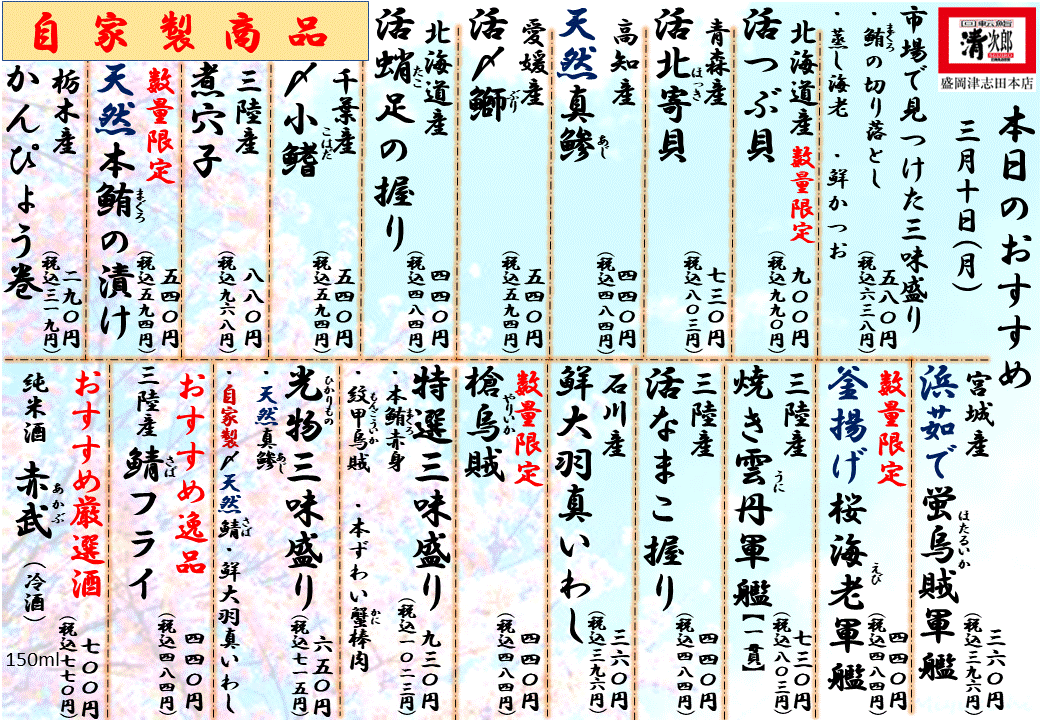 回転鮨
清次郎
盛岡津志田本店
本日のおすすめ
三月十日(月)
市場で見つけた三味盛り
・鮪の切り落とし
まぐろ
・蒸し海老 ・鮮かつお
五八〇円
(税込六三八円)
北海道産 数量限定
活つぶ貝
九〇〇円
(税込九九〇円)
青森産
活北寄貝
ほっき
七三〇円
(税込八〇三円)
高知産
天然真鯵
あじ
四四〇円
(税込四八四円)
愛媛産
活〆鰤
ぶり
五四〇円
(税込五九四円)
北海道産
活蛸足の握り
たこ
四四〇円
(税込四八四円)
自家製商品
千葉産
〆小鰭
こはだ
五四〇円
(税込五九四円)
三陸産
煮穴子
八八〇円
(税込九六八円)
数量限定
天然本鮪の漬け
まぐろ
五四〇円
(税込五九四円)
栃木産
かんぴょう巻
二九〇円
(税込三一九円)
宮城産
浜茹で蛍烏賊軍艦
ほたるいか
三六〇円
(税込三九六円)
数量限定
釜揚げ桜海老軍艦
えび
四四〇円
(税込四八四円)
三陸産
焼き雲丹軍艦【一貫】
うに
七三〇円
(税込八〇三円)
三陸産
活なまこ握り
四四〇円
(税込四八四円)
石川産
鮮大羽真いわし
三六〇円
(税込三九六円)
数量限定
槍烏賊
やりいか
四四〇円
(税込四八四円)
特選三味盛り
・本鮪赤身
まぐろ
・紋甲烏賊 ・本ずわい蟹棒肉
もんごういか
かに
九三〇円
(税込一〇二三円)
光物三味盛り
ひかりもの
・天然真鯵
あじ
・自家製〆天然鯖・鮮大羽真いわし
さば
六五〇円
(税込七一五円)
おすすめ逸品
三陸産 鯖フライ
さば
四四〇円
(税込四八四円)
おすすめ厳選酒
純米酒 赤武 (冷酒)
あかぶ
150ml
七〇〇円
(税込七七〇円)